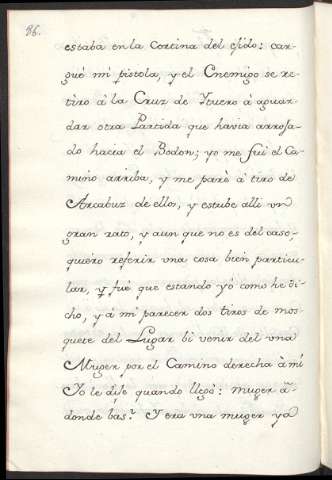 86.
estaba en la Cortina del exido: car-
gué mi pistola, y el Enemigo se re-
tiro á la Cruz de Ituero á aguar-
dar otra Partida que havia arroja-
do hacia el Bodon; yo me fuí el Ca-
mino arriba, y me paré á tiro de
Arcabuz de ellos, y estube alli vn
gran rato, y aun que no es del caso,
quiero referir vna cosa bien particu-
lar, y fué que estando yó como he di-
cho, y á mi parecer dos tiros de mos-
quete del Lugar bi venir del vna
Muger por el Camino derecha à mí
Yo le dije quando llegó: muger â-
donde bas? Y era vna muger ya